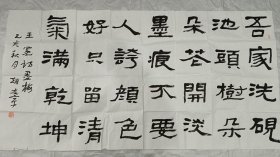 吾家洗硯
池頭樹朵
朵花開淡
墨痕不要
人誇顏色
好只留清
氣滿乾坤
王冕詩墨梅
秋月